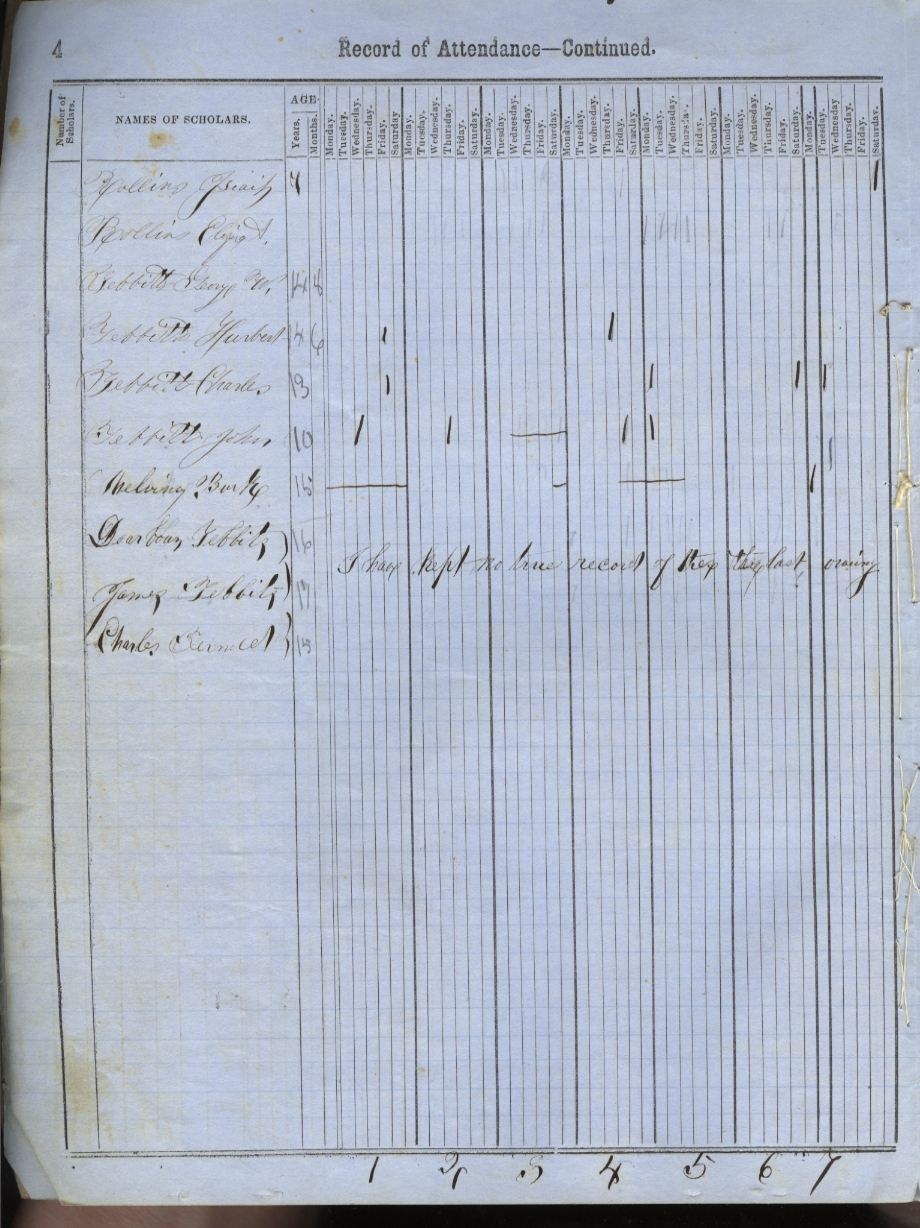 4 Record of Attendance—Continued.
Number of Scholars. NAMES OF SCHOLARS. AGE. Years. Months. Monday. Tuesday. Wednesday. Thursday. Friday. Saturday Monday. Tuesday. Wednesday. Thursday. Friday. Saturday. Monday. Tuesday. Wednesday. Thursday. Friday. Saturday. Monday. Tuesday. Wednesday. Thursday. Friday. Saturday. Monday. Tuesday. Wednesday. Thursday. Friday. Saturday. Monday. Tuesday. Wednesday. Thursday. Friday. Saturday. Monday. Tuesday. Wednesday. Thursday. Friday. Saturday.
Rollins 7
Rollins
Tebbitts W. 4 8
Tebbitts Hurbert 4 6
Tebbitts Charles 13
Tebbitts John 10
Melving Burk 15
Tebbits 16
I have kept no true record of the last
James Tebbits 17
Charles 15
1 2 3 4 5 6 7